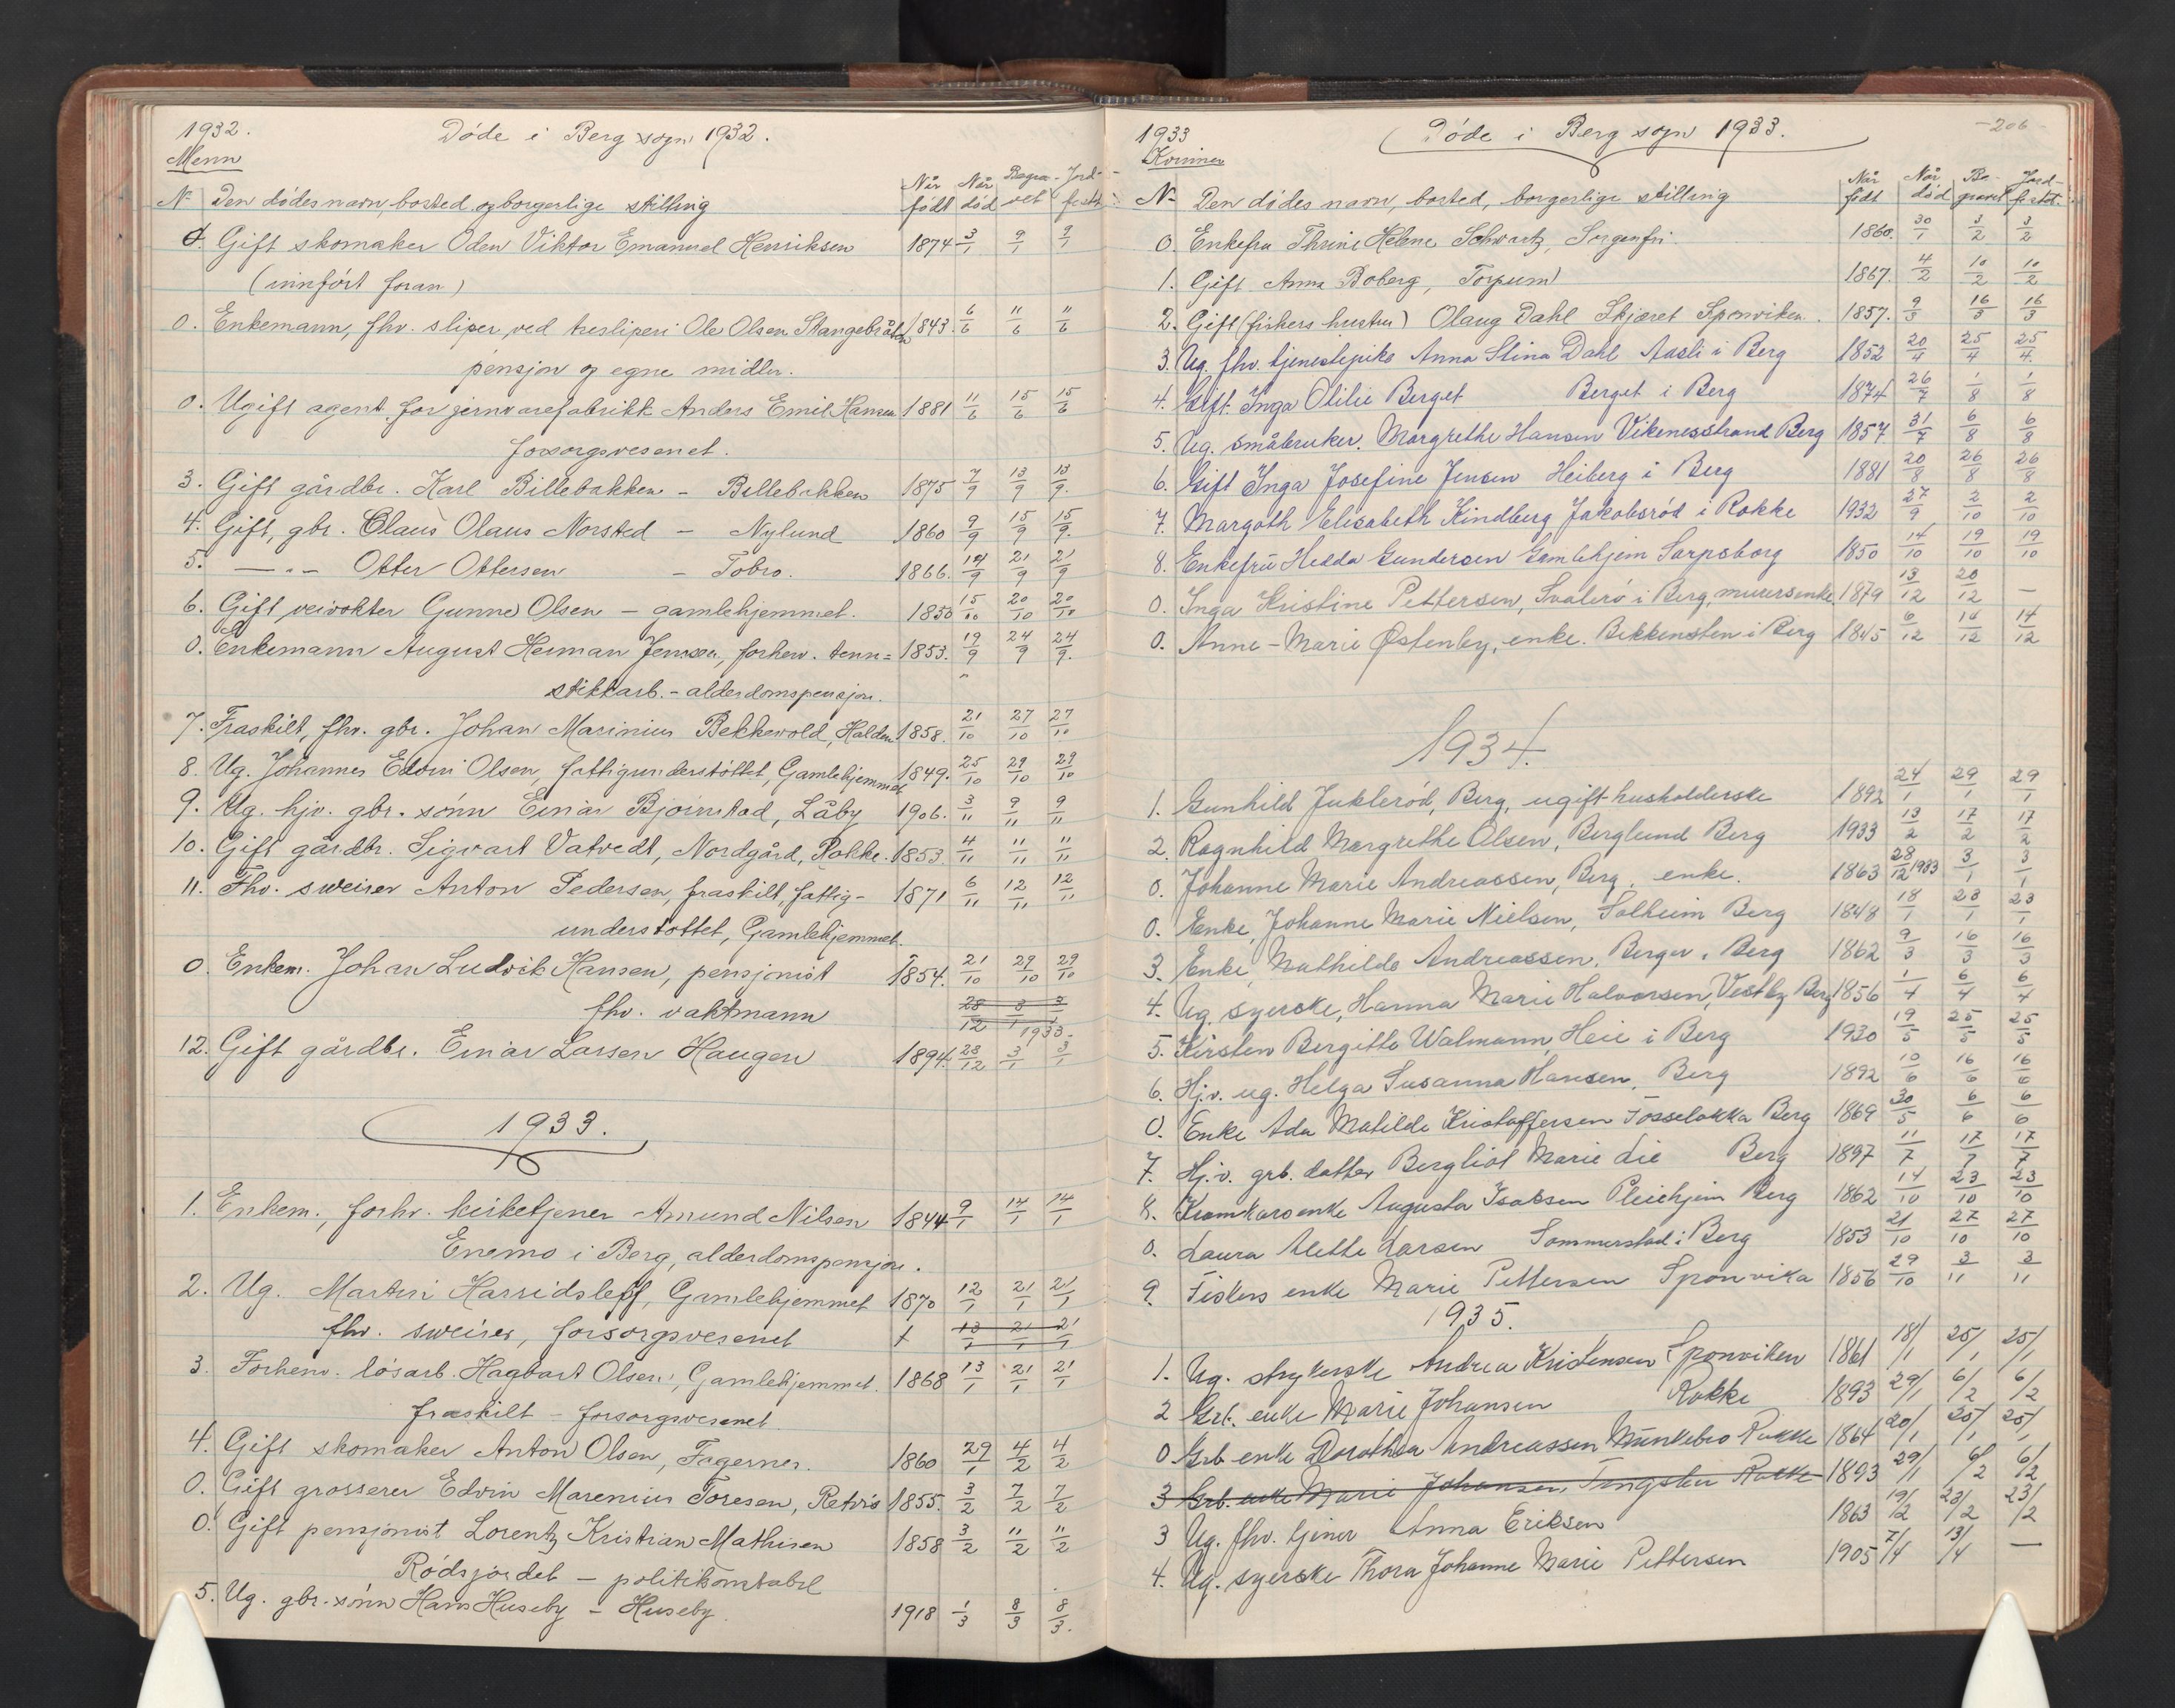 1932.
Døde i Berg sogn 1932.
Menn
No Den dødes navn, bosted og borgerlige stilling Når født Når død Begra-vet Jord-festet
0. Gift skomaker Oden Viktor Emanuel Henriksen 1874 3/1 9/1 9/1
(innført foran)
0. Enkemann, fhv. sliper ved tresliperi Ole Olsen Stangebråten 1843. 6/6 11/6 11/6
pensjon og egne midler.
0. Ugift agent for jernvarefabrikk Anders Emil Hansen 1881 11/6 15/6 15/6
forsorgsvesenet.
3. Gift gårdbr. Karl Billebakken - Billebakken 1875 7/9 13/9 13/9.
4. Gift, gbr. Claus Olaus Norsted - Nylund 1860 9/9 15/9 15/9.
5. —"— Otter Ottersen - Tobro. 1866. 19/9 21/9 21/9
6. Gift veivokter Gunne Olsen - gamlehjemmet. 1850 15/10 20/10 20/10
0. Enkemann August Herman Jensen, forhenv. tenn= 1853. 19/9 24/9 24/9.
stikkarb. - alderdomspensjon.
7. Fraskilt, fhv. gbr. Johan Marinius Bekkevold, Halden 1858. 21/10 27/10 27/10
8. Ug. Johannes Edvin Olsen, fattigunderstøttet, Gamlehjemmet 1849. 25/10 29/10 29/10
9. Ug. hjv. gbr. sønn Einar Bjørnstad, Låby 1906. 3/11 9/11 9/11
10. Gift gårdbr. Sigvart Vatvedt, Nordgård, Rokke. 1853. 4/11 11/11 11/11
11. Fhv. sveiser Anton Pedersen, fraskilt, fattig- 1871 6/11 12/11 12/11
understøttet, Gamlehjemmet.
0. Enkem. Johan Ludvik Hansen, pensjonist 1854. 21/10 29/10 29/10
fhv. vaktmann 28/12 3/1 3/1 1933.
12. Gift gårdbr. Einar Larsen Haugen 1894. 28/12 3/1 3/1
1933.
1. Enkem., forhv. kirketjener Amund Nilsen 1844 9/1 14/1 14/1
Enemo i Berg, alderdomspensjon.
2. Ug. Martin Harridsleff, Gamlehjemmet 1870 12/1 21/1 21/1
fhv. sveiser, forsorgsvesenet + 13/1 21/1 21/1
3. Forhenv. løsarb. Hagbart Olsen, Gamlehjemmet. 1868 13/1 21/1 21/1
fraskilt - forsorgsvesenet
4. Gift skomaker Anton Olsen, Fagernes. 1860 29/1 4/2 4/2
0. Gift grosserer Edvin Marenius Toresen, Retvis 1855. 3/2 7/2 7/2
0. Gift pensjonist Lorentz Kristian Mathisen 1858 3/2 11/2 11/2
Rødsjordet - politikonstabel
5. Ug. gbr. sønn Hans Huseby - Huseby. 1918 1/3 8/3 8/3.
1933
Døde i Berg sogn 1933.
-206
Kvinner
No Den dødes navn, bosted, borgerlige stilling Når født Når død Be-gravet Jord-festet.
0. Enkefru Thrine Helene Schwartz, Sorgenfri 1860. 30/1 3/2 3/2
1. Gift Anna Boberg, Torpum 1867. 4/2 10/2 10/2
2. Gift (fiskers hustru) Olaug Dahl Skjæret Sponviken. 1857. 9/3 16/3 16/3
3. Ug. fhv. tjenestepike Anna Stina Dahl Aasli i Berg 1852 20/4 25/4 25/4.
4. Gift Inga Otilie Berget Berget i Berg 1874 26/7 1/8 1/8
5. Ug. småbruker. Margrethe Hansen Vikenesstrand Berg 1857 31/7 6/8 6/8
6. Gift Inga Josefine Jensen Heiberg i Berg 1881 20/8 26/8 26/8
7. Margoth Elisabeth Kindberg Jakobsrød i Rokke 1932 27/9 2/10 2/10
8. Enkefru Hedda Gundersen Gamlehjem Sarpsborg 1850 14/10 19/10 19/10
0. Inga Kristine Pettersen, Svalerø i Berg, murersenke. 1879 13/12 20/12 —
0. Anne-Marie Østenby, enke. Bekkensten i Berg 1845 6/12 14/12 14/12
1934.
1. Gunhild Juklerød, Berg, ugift husholderske 1892 24/1 29/1 29/1
2. Ragnhild Margrethe Olsen, Berglund Berg 1933 13/2 17/2 17/2
0. Johanne Marie Andreassen, Berg, enke. 1863 28/12 1933 3/1 3/1
0. Enke, Johanne Marie Nielsen, Solheim Berg 1848 18/1 23/1 23/1
3. Enke, Mathilde Andreassen, Berger i Berg 1862 9/3 16/3 16/3
4. Ug. syerske, Hanna Marie Halvorsen, Vestby Berg 1856 1/4 6/4 6/4
5. Kirsten Bergitte Walmann, Heie i Berg 1930 19/5 25/5 25/5
6. Hj.v. ug. Helga Susanna Hansen, Berg 1892 10/6 16/6 16/6
0. Enke Ada Matilde Kristoffersen Fosseløkka Berg 1869 30/5 6/6 6/6
7. Hj.v. grb. datter Bergliot Marie Lie Berg 1897 11/7 17/7 17/7
8. Kramkarsenke Augusta Isaksen Pleiehjem Berg 1862 14/10 23/10 23/10
0. Laura Alette Larsen Sommerstad i Berg 1853 21/10 27/10 27/10
9. Fiskers enke Marie Pettersen Sponvika 1856 29/10 3/11 3/11
1935.
1. Ug. strykerske Andrea Kristensen Sponviken 1861 18/1 25/1 25/1
2 Grb. enke Marie Johansen Rokke 1893 29/1 6/2 6/2
0 Grb. enke Dorothea Andreassen Munkebro Rokke 1864 20/1 25/1 25/1
3 Grb. enke Marie Johansen, Rokke 1893 29/1 6/2 6/2
3 Ug. fhv. tjener Anna Eriksen 1863 19/2 23/2 23/2
4. Ug. syerske Thora Johanne Marie Pettersen 1905 7/4 13/4 —